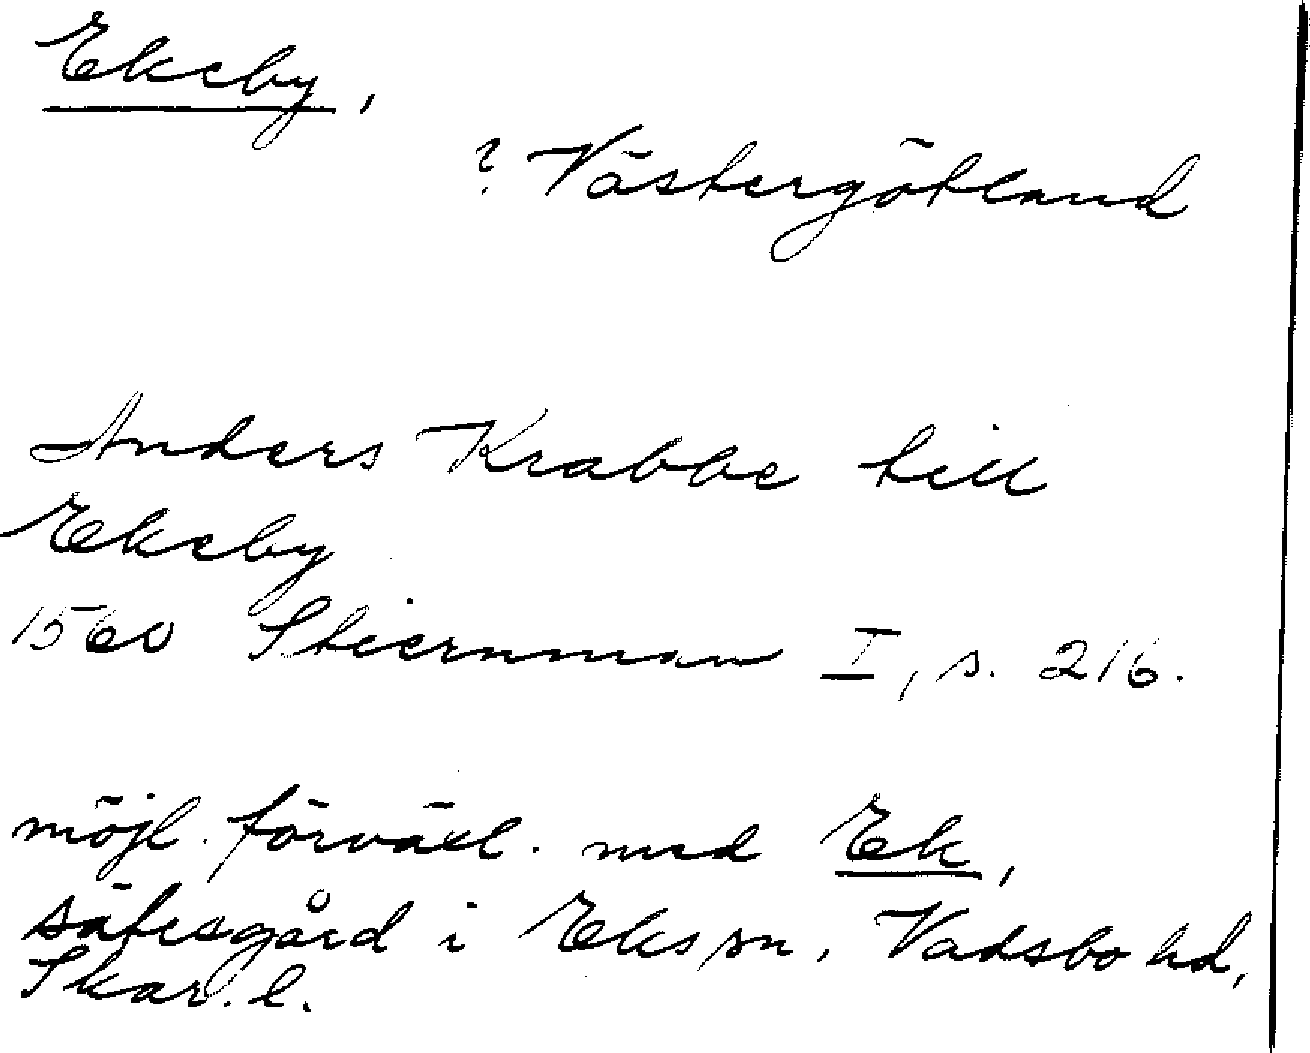 Ekeby,
? Västergötland
Anders Krabbe till
Ekeby
1560 Stiernman I, s. 216.
möjl. förväxl. med Ek,
sätesgård i Eks sn, Vadsbo hd,
Skar. l.